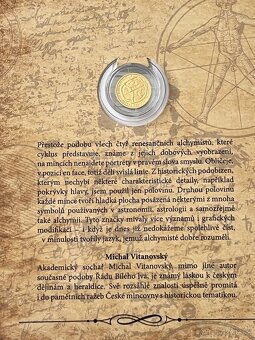 Přestože podobu všech čtyř renesančních alchymistů, které
cyklus představuje, známe z jejich dobových vyobrazení,
na mincích nenajdete portréty v pravém slova smyslu. Obličeje,
v pozici en face, totiž dělí svislá linie. Z historických podobizen,
kterým nechybí některé charakteristické detaily, například
pokrývky hlavy, jsem použil jen polovinu. Druhou polovinu
každé mince tvoří hladká plocha posázená některými z mnoha
symbolů používaných v astronomii, astrologii a samozřejmě
také alchymii. Tyto značky mívaly více významů i grafických
modifikací – i když je dnes již nedokážeme spolehlivě číst,
v minulosti tvořily jazyk, jemuž alchymisté dobře rozuměli.
Michal Vitanovský
Akademický sochař Michal Vitanovský, mimo jiné autor
současné podoby Řádu Bílého lva, je známý láskou k českým
dějinám a heraldice. Své rozsáhlé znalosti úspěšně promítá
i do pamětních ražeb České mincovny s historickou tematikou.